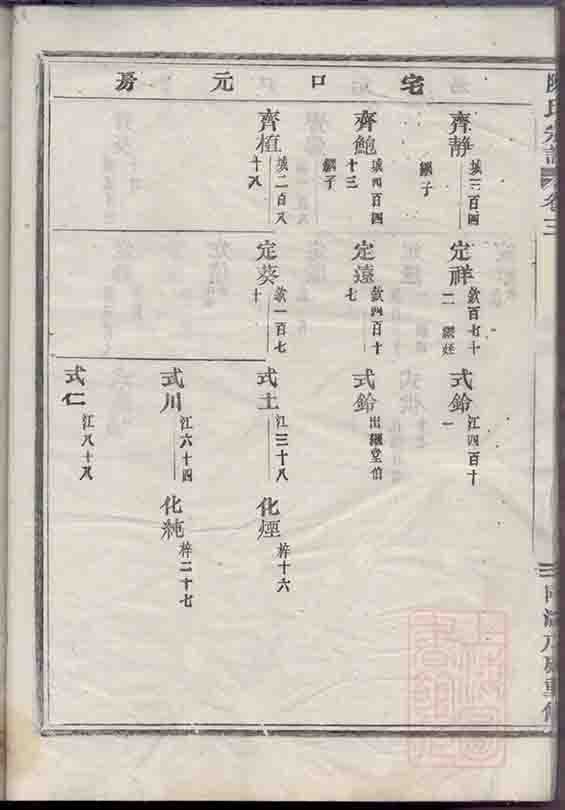 宅口元房
齊靜 城三百四
繼子
定祥 欽百七十
二 繼姪
式鈴 江四百十
一
齊鮑 城四百四
十三 繼子
定遠 欽四百十
七
式鈴 出繼堂伯
齊植 城二百八
十八
定葵 欽一百七
十
式土 江三十八
化煙 梓十六
式川 江六十四
化純 梓二十七
式仁 江八十八
陳氏宗譜 卷三
三